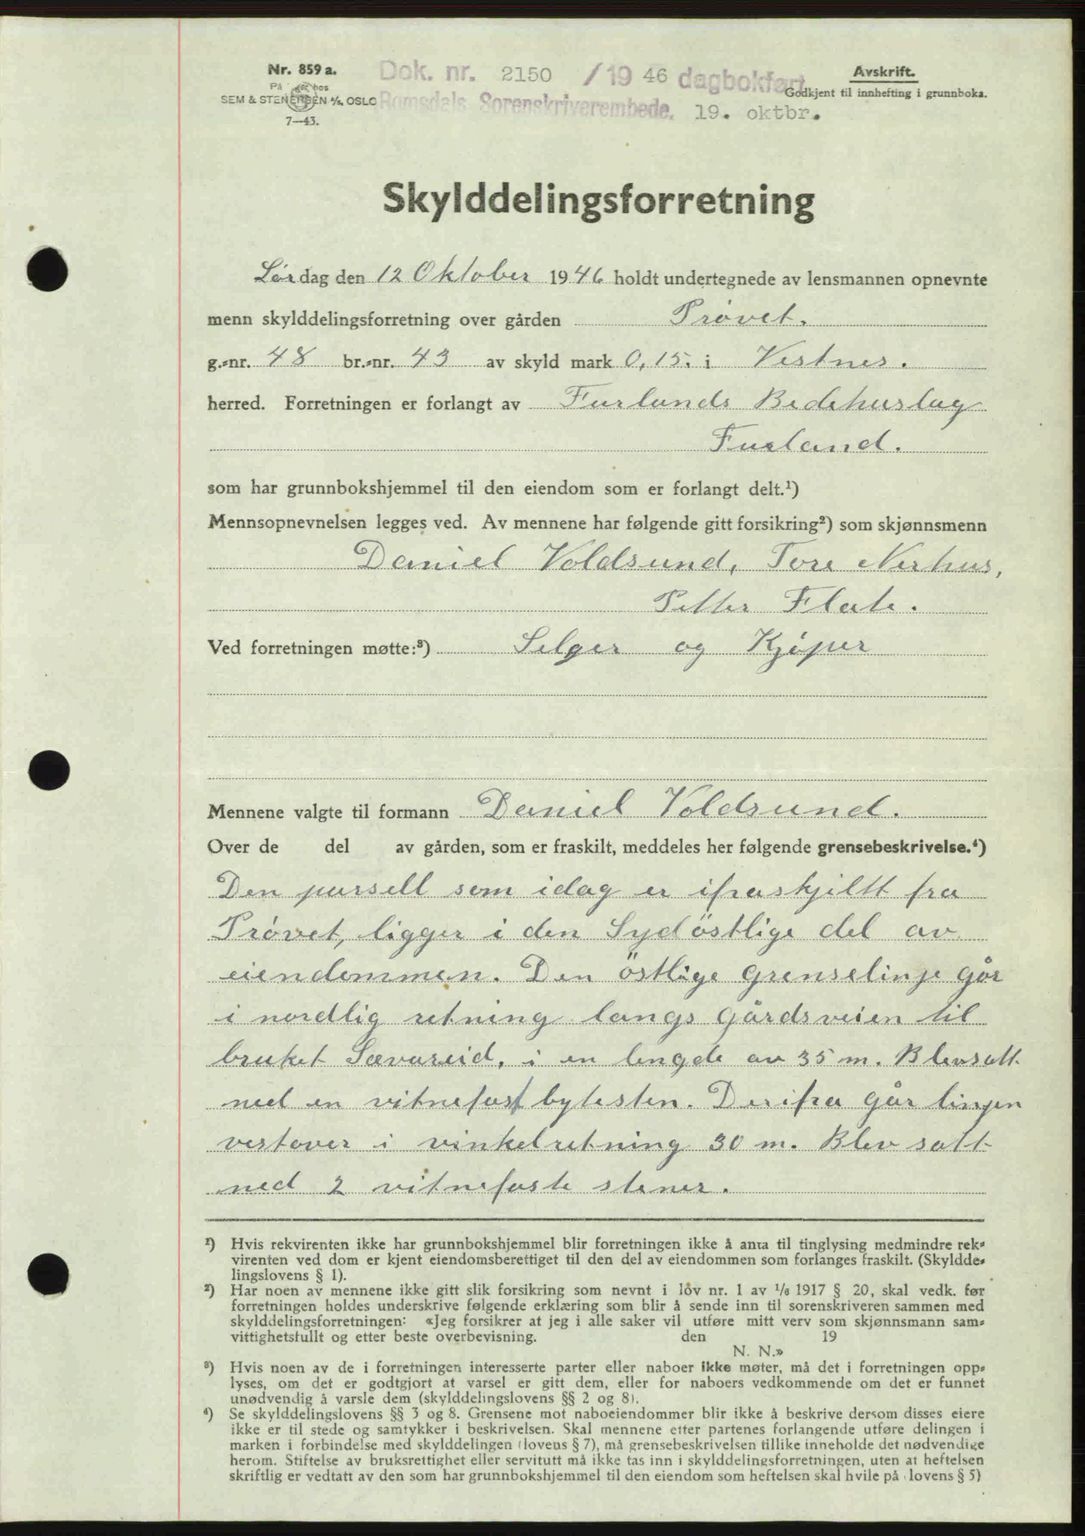 Nr. 859 a.
På
SEM & STENERSEN A/S, OSLO
7—43.
Dok. nr. 2150 /19 46 dagbokført
Romsdals Sorenskriverembede, 19. oktbr.
Avskrift.
Godkjent til innhefting i grunnboka.
Skylddelingsforretning
Lørdag den 12 Oktober 1946 holdt undertegnede av lensmannen opnevnte
menn skylddelingsforretning over gården Prøvet.
g.-nr. 48 br.-nr. 43 av skyld mark 0,15, i Vestnes.
herred. Forretningen er forlangt av Furlands Bedehuslag
Furland.
som har grunnbokshjemmel til den eiendom som er forlangt delt.¹)
Mennsopnevnelsen legges ved. Av mennene har følgende gitt forsikring²) som skjønnsmenn
Daniel Voldsund, Tore Nerhus,
Petter Flate.
Ved forretningen møtte:³) Selger og Kjøper
Mennene valgte til formann Daniel Voldsund.
Over de del av gården, som er fraskilt, meddeles her følgende grensebeskrivelse.⁴)
Den parsell som idag er ifraskjiltt fra
Prøvet, ligger i den Sydöstlige del av
eiendommen. Den östlige grenselinje går
i nordlig retning langs gårdsveien til
bruket Sævareid, i en lengde av 35 m. Blev satt
ned en vitnefast bytesten. Derifra går linjen
vestover i vinkelretning 30 m. Blev satt
ned 2 vitnefaste stener.
¹) Hvis rekvirenten ikke har grunnbokshjemmel blir forretningen ikke å anta til tinglysing medmindre rek-
virenten ved dom er kjent eiendomsberettiget til den del av eiendommen som forlanges fraskilt. (Skyldde-
lingslovens § 1).
²) Har noen av mennene ikke gitt slik forsikring som nevnt i lov nr. 1 av 1/6 1917 § 20, skal vedk. før
forretningen holdes underskrive følgende erklæring som blir å sende inn til sorenskriveren sammen med
skylddelingsforretningen: «Jeg forsikrer at jeg i alle saker vil utføre mitt verv som skjønnsmann sam-
vittighetsfullt og etter beste overbevisning. den 19
N. N.»
³) Hvis noen av de i forretningen interesserte parter eller naboer ikke møter, må det i forretningen opp-
lyses, om det er godtgjort at varsel er gitt dem, eller for naboers vedkommende om det er funnet
unødvendig å varsle dem (skylddelingslovens §§ 2 og 8).
⁴) Se skylddelingslovens §§ 3 og 8. Grensene mot naboeiendommer blir ikke å beskrive dersom disses eiere
ikke er til stede og samtykker i beskrivelsen. Skal mennene etter partenes forlangende utføre delingen i
marken i forbindelse med skylddelingen (lovens § 7), må grensebeskrivelsen tillike inneholde det nødvendige
herom. Stiftelse av bruksrettighet eller servitutt må ikke tas inn i skylddelingsforretningen, uten at heftelsen
skriftlig er vedtatt av den som har grunnbokshjemmel til den eiendom som heftelsen skal hvile på (lovens § 5)